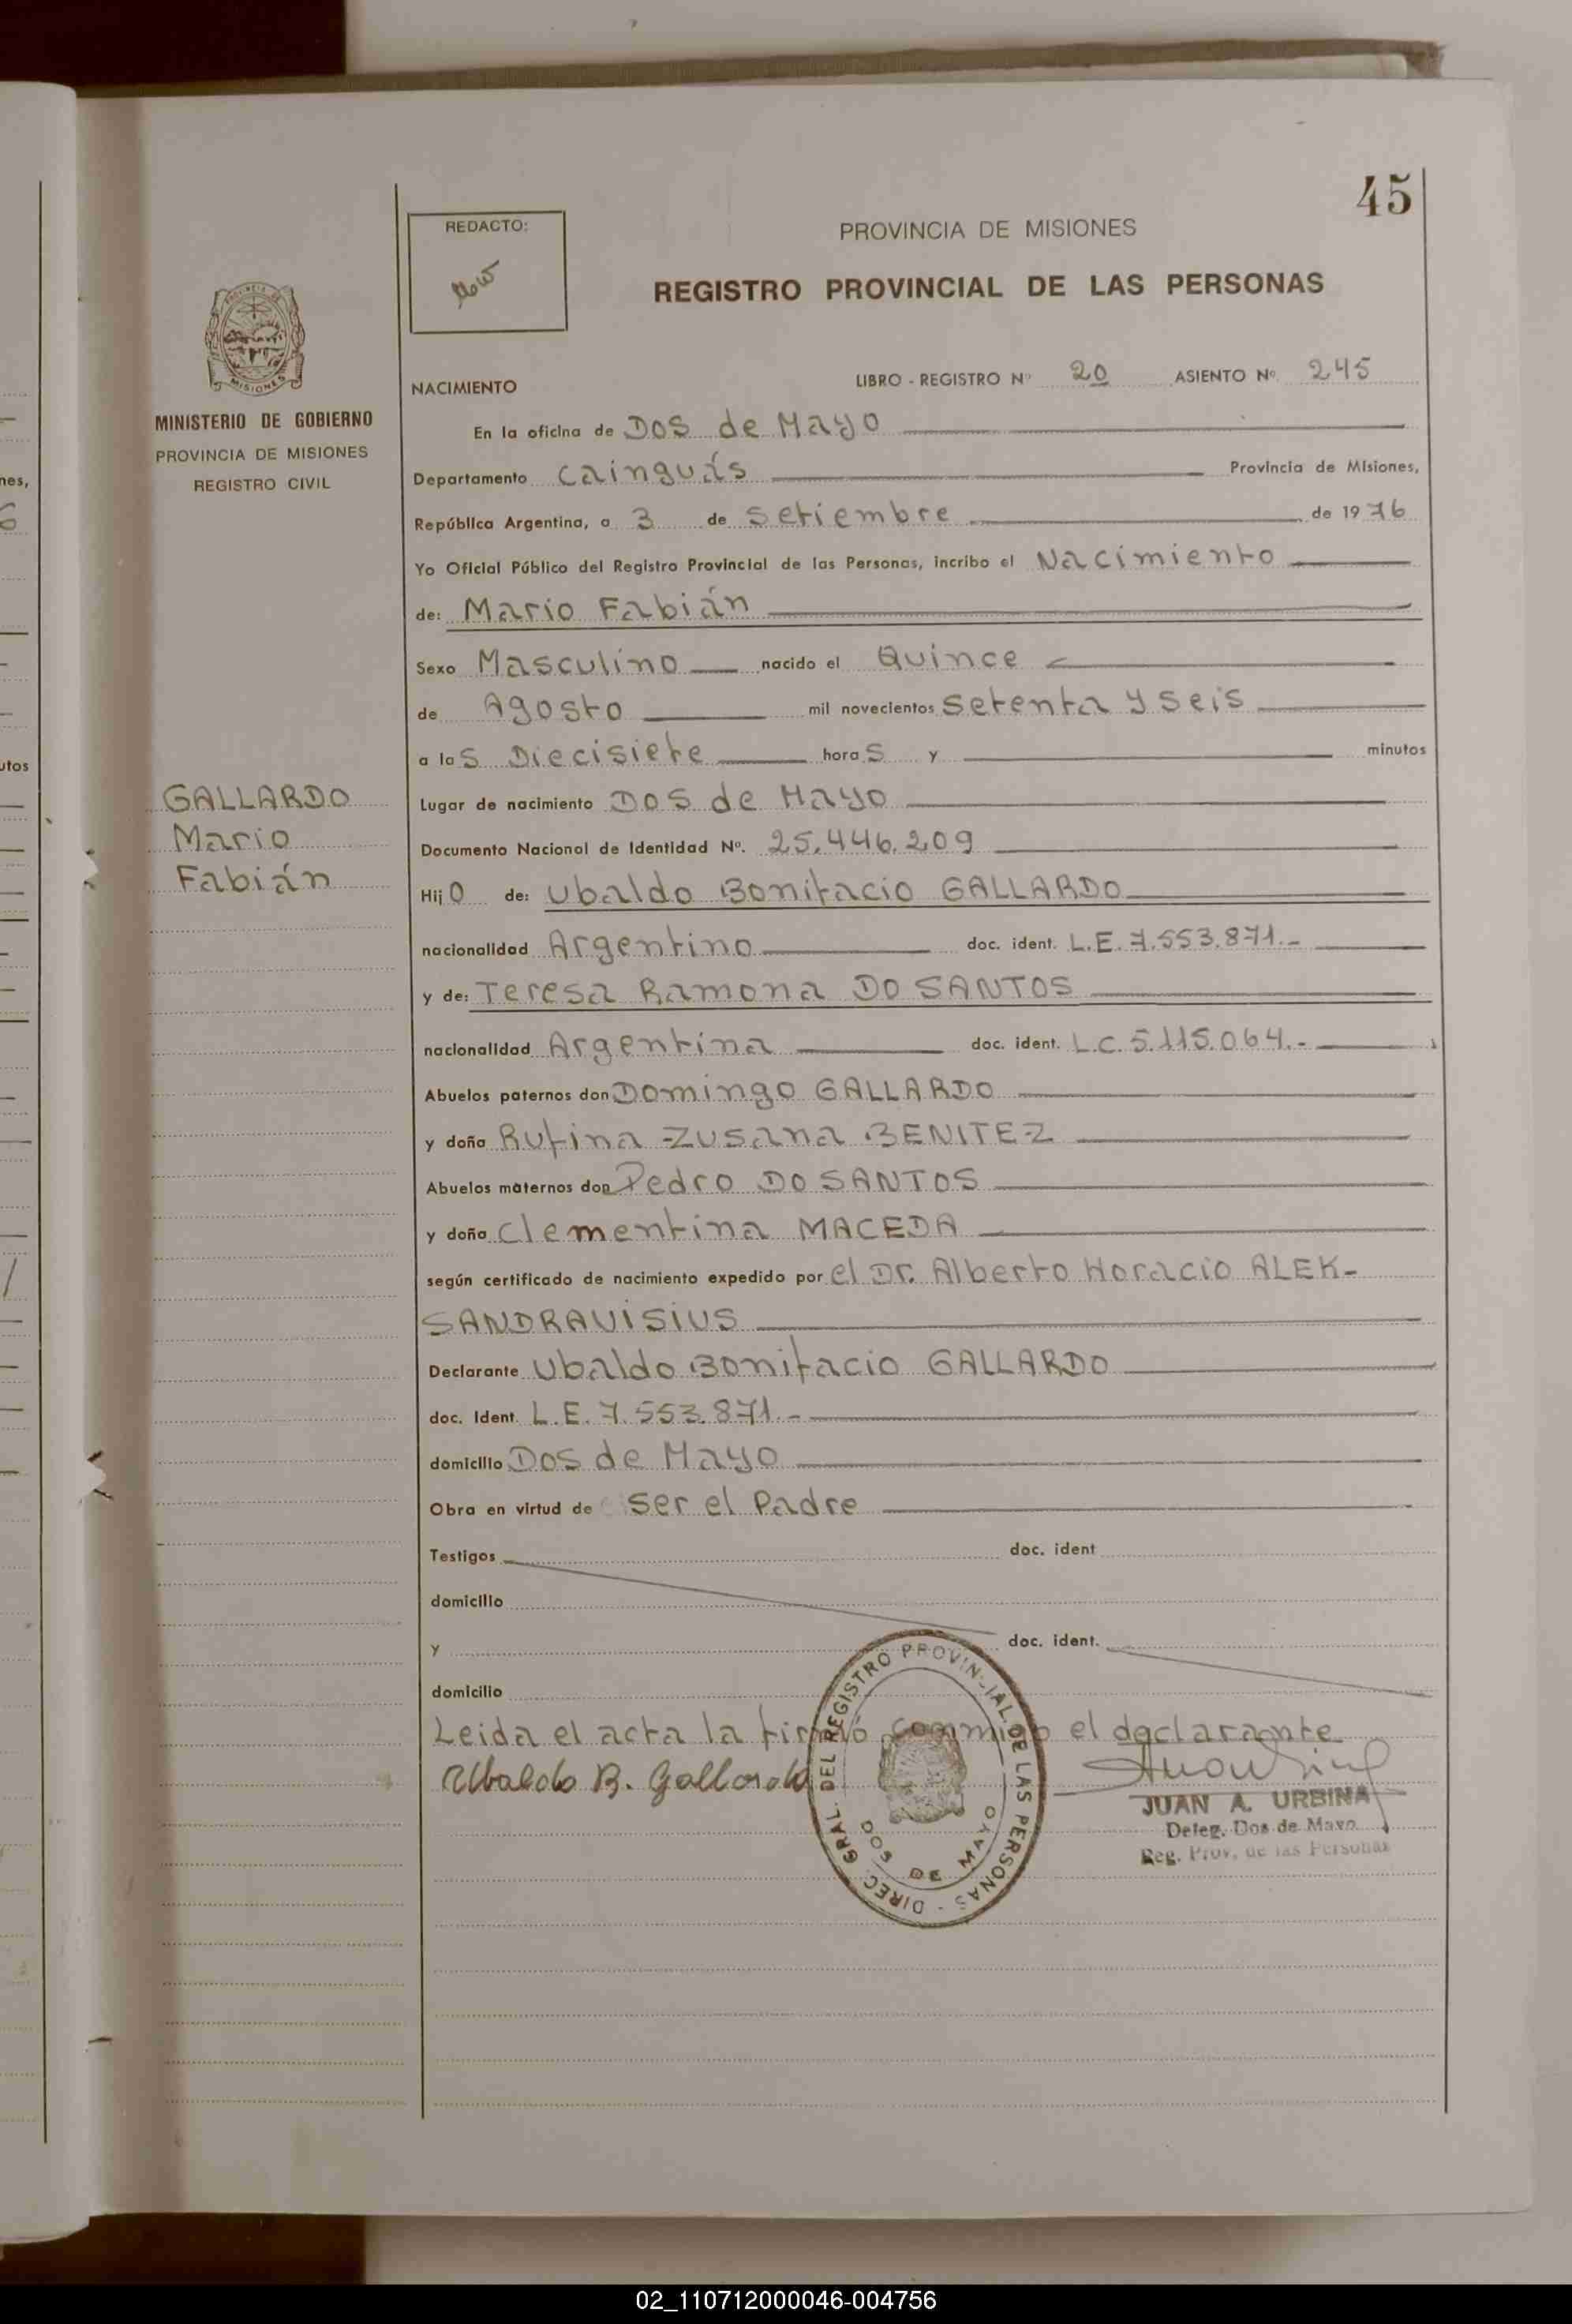 45
REDACTO:
PROVINCIA DE MISIONES
REGISTRO PROVINCIAL DE LAS PERSONAS
MISIONES
MINISTERIO DE GOBIERNO
PROVINCIA DE MISIONES
REGISTRO CIVIL
NACIMIENTO
LIBRO - REGISTRO Nº 20 ASIENTO Nº 245
En la oficina de Dos de Mayo
Departamento Cainguás Provincia de Misiones,
República Argentina, a 3 de Setiembre de 1976
Yo Oficial Público del Registro Provincial de las Personas, incribo el Nacimiento
de: Mario Fabián
Sexo Masculino nacido el Quince
de Agosto mil novecientos setenta y seis
a las Diecisiete horas y minutos
GALLARDO
Mario
Fabián
Lugar de nacimiento Dos de Mayo
Documento Nacional de Identidad Nº. 25.446.209
Hijo de: Ubaldo Bonifacio GALLARDO
nacionalidad Argentino doc. ident. L.E. 7.553.871.-
y de: Teresa Ramona DO SANTOS
nacionalidad Argentina doc. ident. L.C. 5.115.064.-
Abuelos paternos don Domingo GALLARDO
y doña Rufina Zusana BENITEZ
Abuelos maternos don Pedro DO SANTOS
y doña Clementina MACEDA
según certificado de nacimiento expedido por el Dr. Alberto Horacio ALEK-
SANDRAVISIUS
Declarante Ubaldo Bonifacio GALLARDO
doc. Ident. L.E. 7.553.871.-
domicilio Dos de Mayo
Obra en virtud de ser el Padre
Testigos doc. ident
domicilio
y doc. ident.
domicilio
Leida el acta la firmó conmigo el declarante
Ubaldo B. Gallardo
DIREC. GRAL. DEL REGISTRO PROVINCIAL DE LAS PERSONAS -
DOS DE MAYO
JUAN A. URBINA
Deleg. Dos de Mayo
Reg. Prov. de las Personas
nes,
utos
02_110712000046-004756